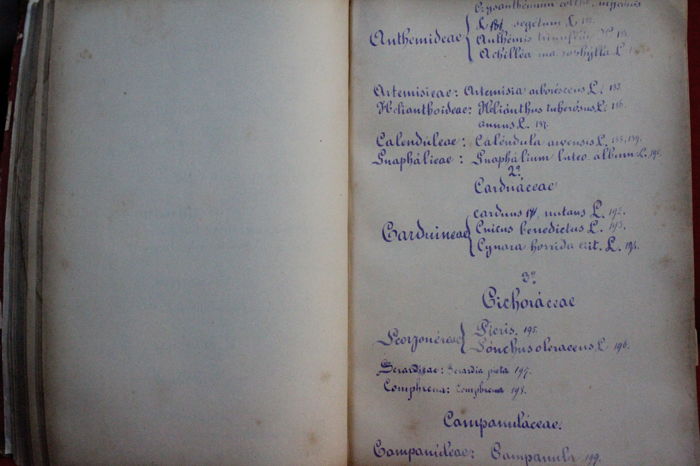 Crysanthémum
Anthemideae { L. 181, segetum L. 182.
Anthémis L.
Achilléa L.
Artemisieae: Artemisia arboréscens L.
Heliantheideae: Héliánthus tuberósus L. 186.
annus L. 187.
Calenduleae: Caléndula arvensis L. 188, 189.
Gnaphálieae: Gnaphálium luteo album L. 190.
2º
Carduáceae
Carduineae { carduus 191, nutans L. 192.
Cnicus benedictus L. 193.
Cynara horrida ait. L. 194.
3º
Cichoráceae
Scorzonéreae { Picris. 195.
Sónchus oleraceus L. 196.
Gerardieae: Gerardia 197.
Comphrena: Comphrena 198.
Campanuláceae.
Campanideae: Campanula 199.